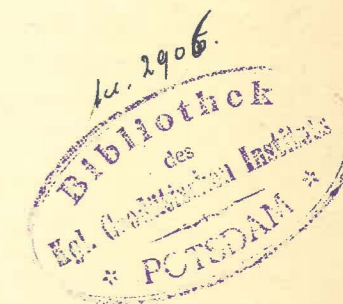 2906.
Bibliothek
des
Kgl. Geodätischen Instituts
* POTSDAM *